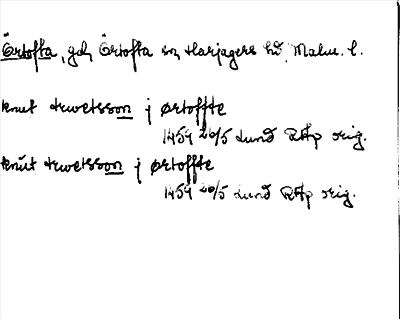 Örtofta, gd, Örtofta sn, Harjagers hd, Malm. l.
knut trwetsson j ørtoffte
1459 20/5 Lund RAp orig.
knut trwetsson j ørtoffte
1459 20/5 Lund RAp orig.